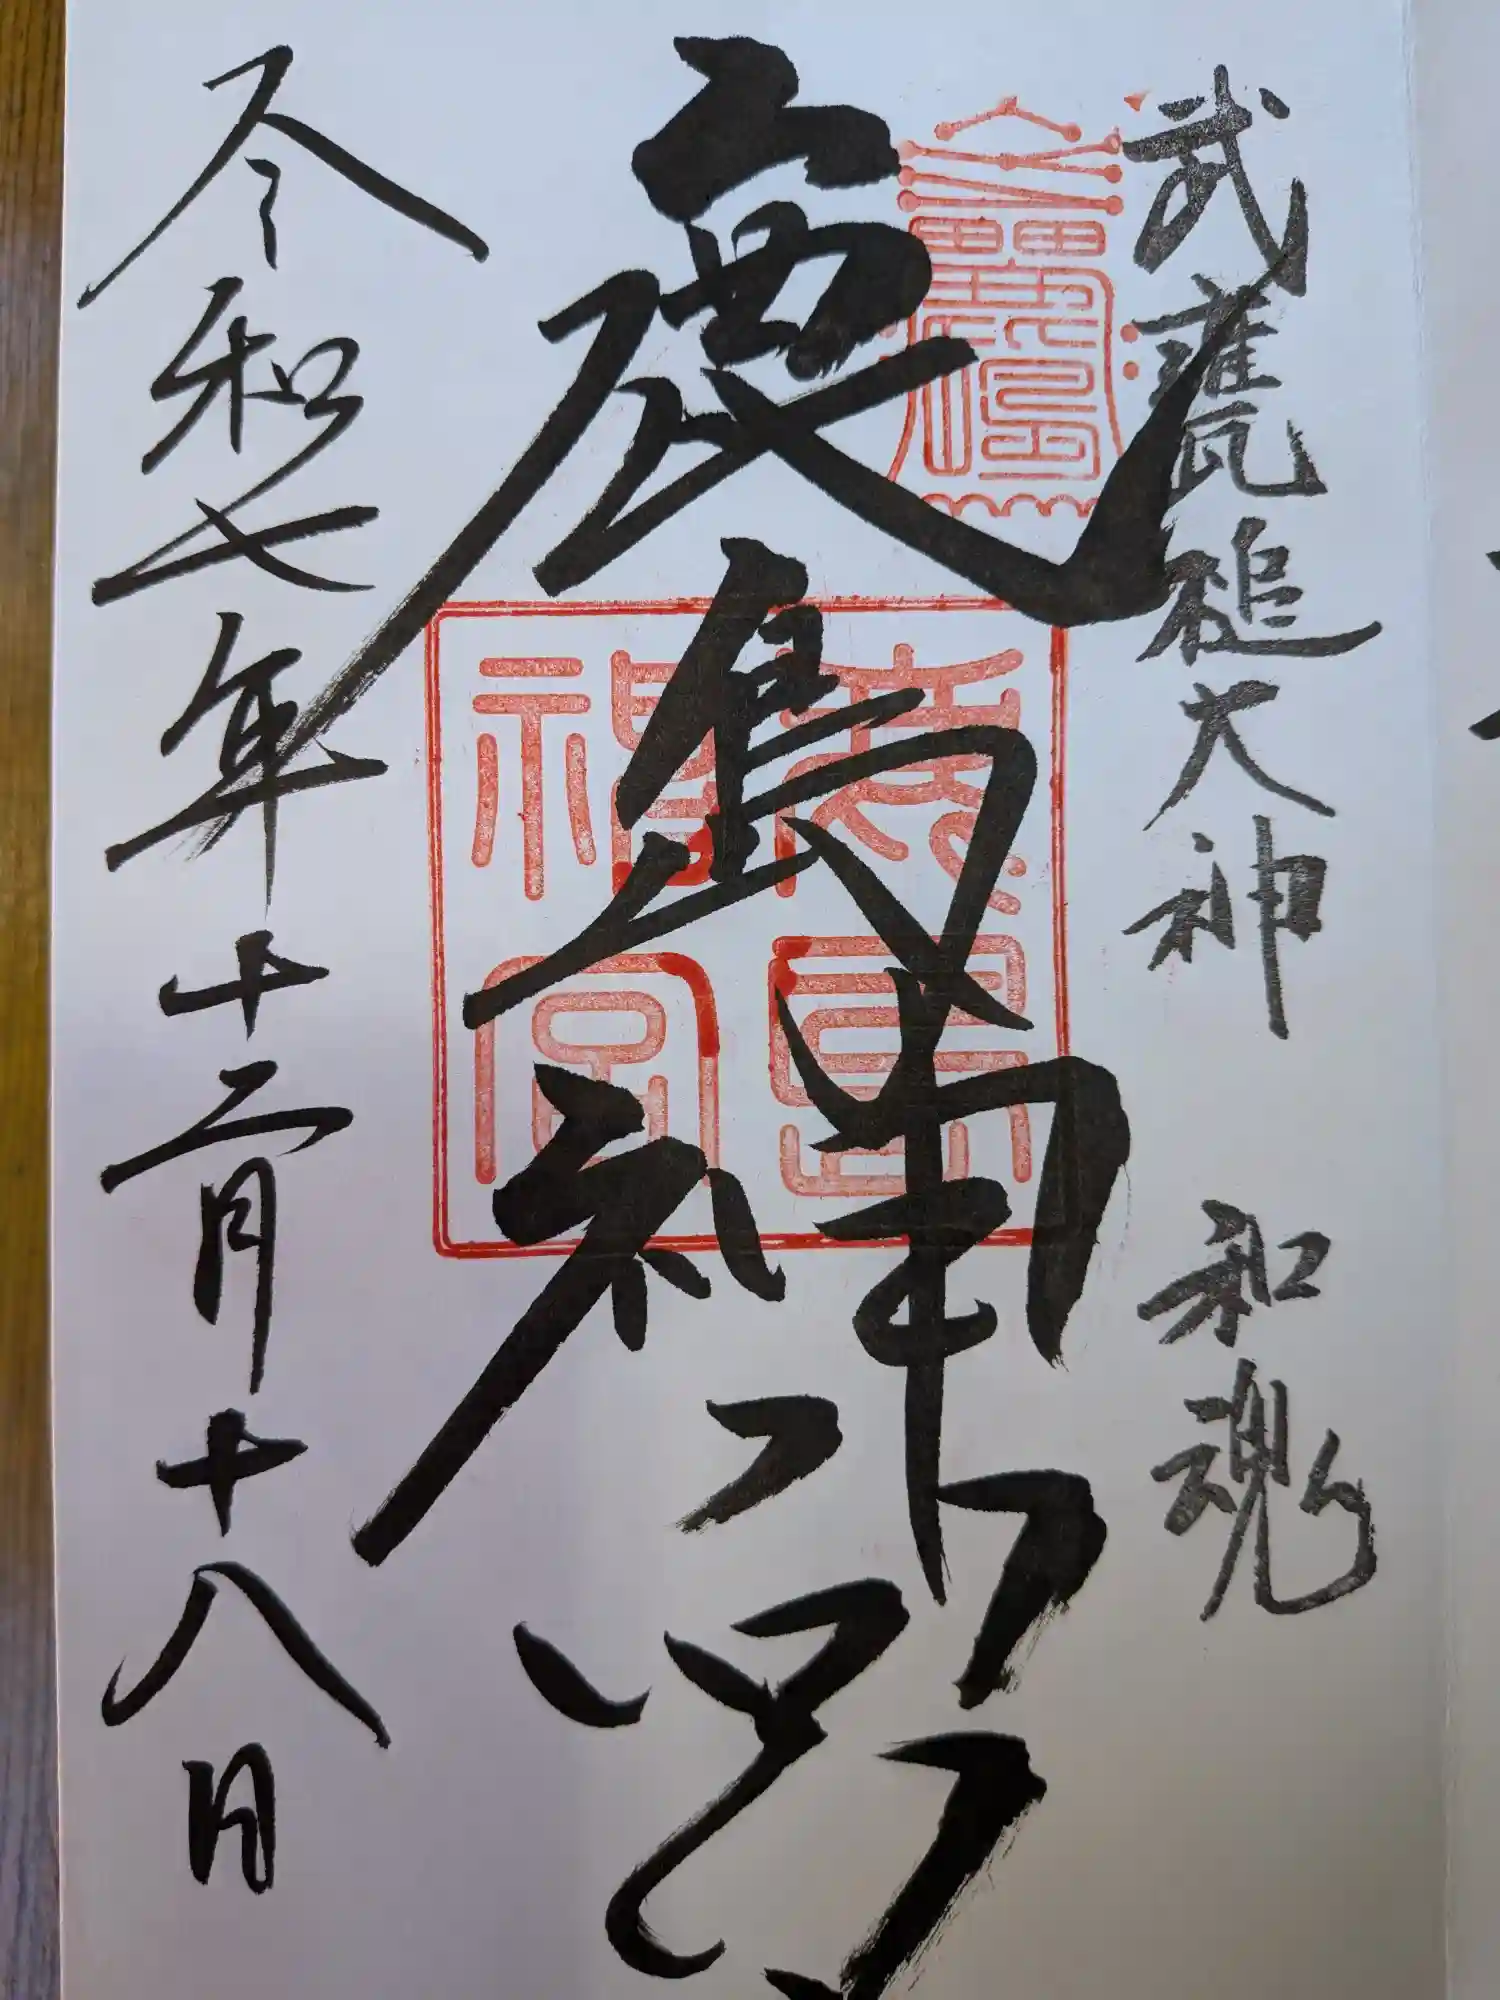 武甕槌大神 和魂
鹿島神宮
令和七年十二月十八日